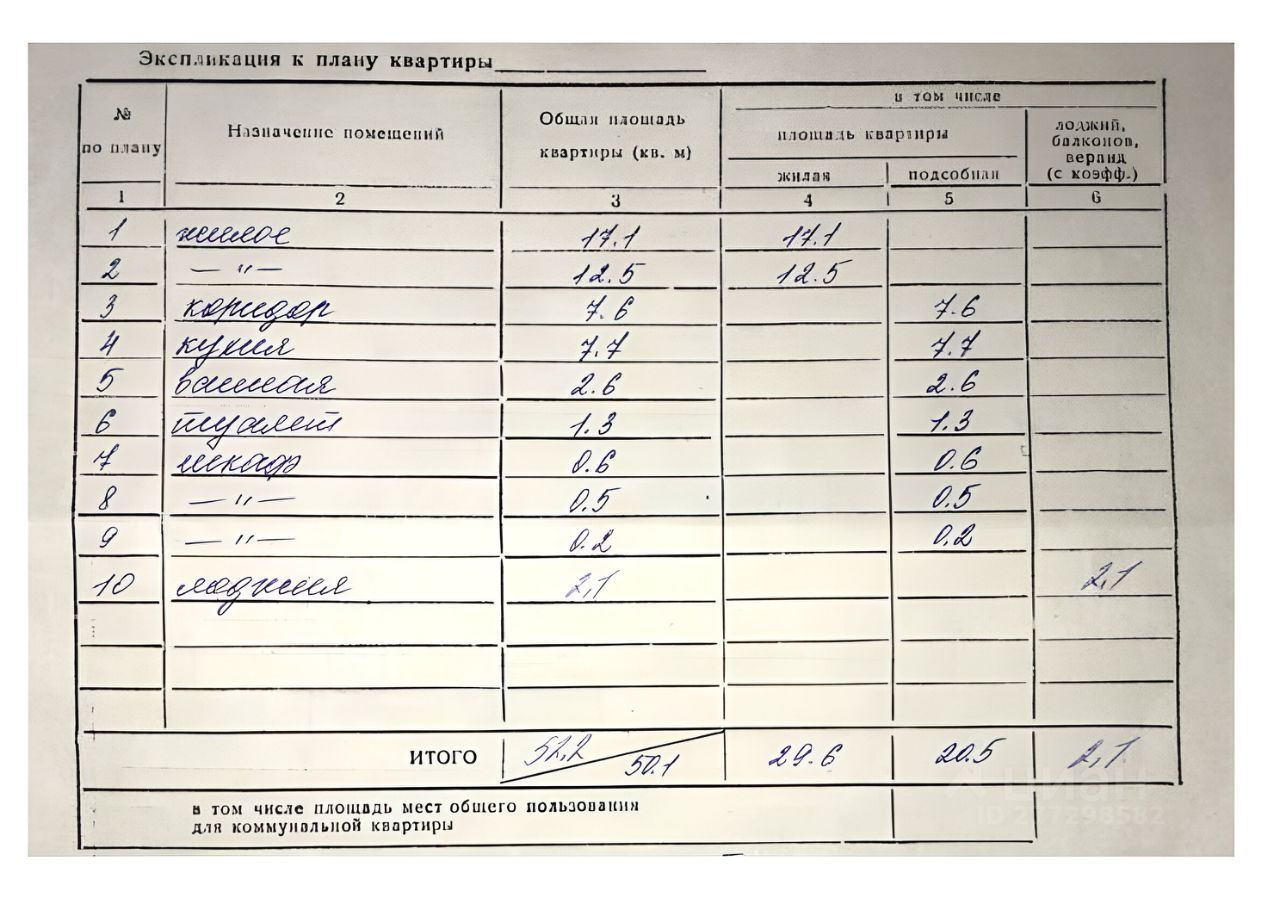 Экспликация к плану квартиры
№ по плану
Назначение помещений
Общая площадь квартиры (кв. м)
в том числе
площадь квартиры
лоджий, балконов, веранд (с коэфф.)
жилая подсобная
1 2 3 4 5 6
1 жилое 17.1 17.1
2 — " — 12.5 12.5
3 коридор 7.6 7.6
4 кухня 7.7 7.7
5 ванная 2.6 2.6
6 туалет 1.3 1.3
7 шкаф 0.6 0.6
8 — " — 0.5 0.5
9 — " — 0.2 0.2
10 лоджия 2,1 2,1
ИТОГО 52,2 / 50.1 29.6 20.5 2,1
в том числе площадь мест общего пользования
для коммунальной квартиры
циан